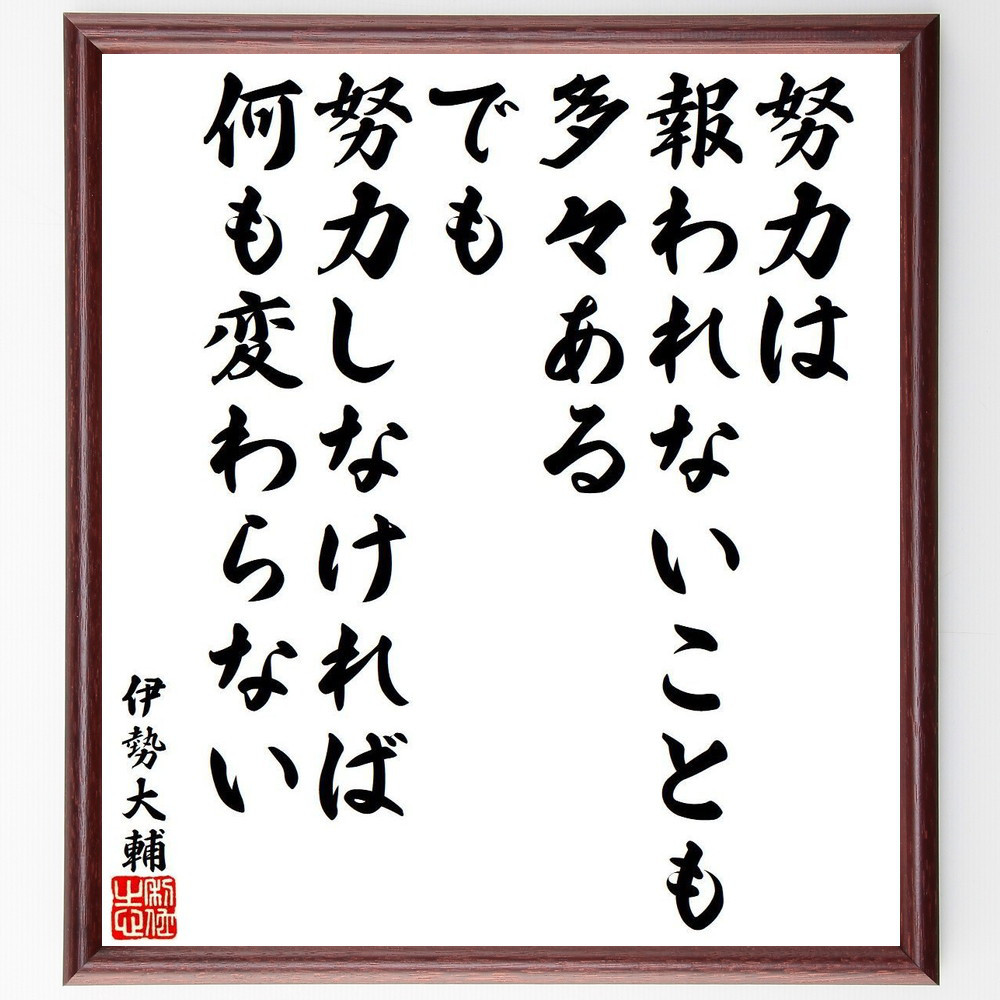 努力は
報われないことも
多々ある
でも
努力しなければ
何も変わらない
伊勢大輔